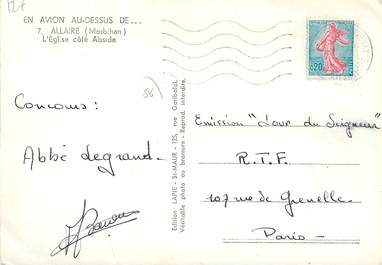 127
EN AVION AU-DESSUS DE...
7. ALLAIRE (Morbihan)
L'Eglise côté Abside
56)
0,20
Concours :
Abbé Legrand.
Edition LAPIE - St-MAUR - 125, rue Garibaldi.
Véritable photo au bromure - Reprod. interdite.
Emission "Jour du Seigneur"
R.T.F.
107 rue de Grenelle
Paris